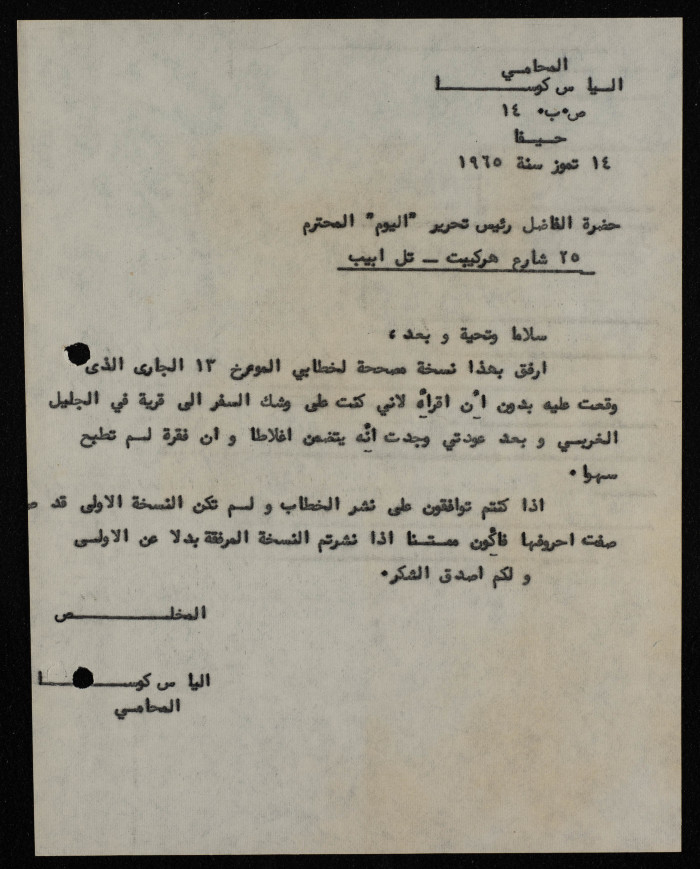 المحامـي
اليـا س كوســـــــــا
ص٠ب٠ ١٤
حـيـفا
١٤ تموز سنة ١٩٦٥
حضرة الفاضل رئيس تحرير "اليوم" المحترم
٢٥ شارع هركيبت ــ تل ابيب
سلاما وتحية و بعد ،
ارفق بهذا نسخة مصححة لخطابي الموءرخ ١٣ الجارى الذى
وقعت عليه بدون أن اقرأه لاني كنت على وشك السفر الى قرية في الجليل
الغربـي و بعد عودتي وجدت أنه يتضمن اغلاطا و ان فقرة لـم تطبع
سهوا ٠
اذا كنتم توافقون على نشر الخطاب و لـم تكن النسخة الاولى قد ص
صفت احروفها فأكون ممتـنا اذا نشرتم النسخة المرفقة بدلا عن الاولـى
و لكم اصدق الشكر٠
المخلـــــــــص
اليا س كوســـــــا
المحامـي